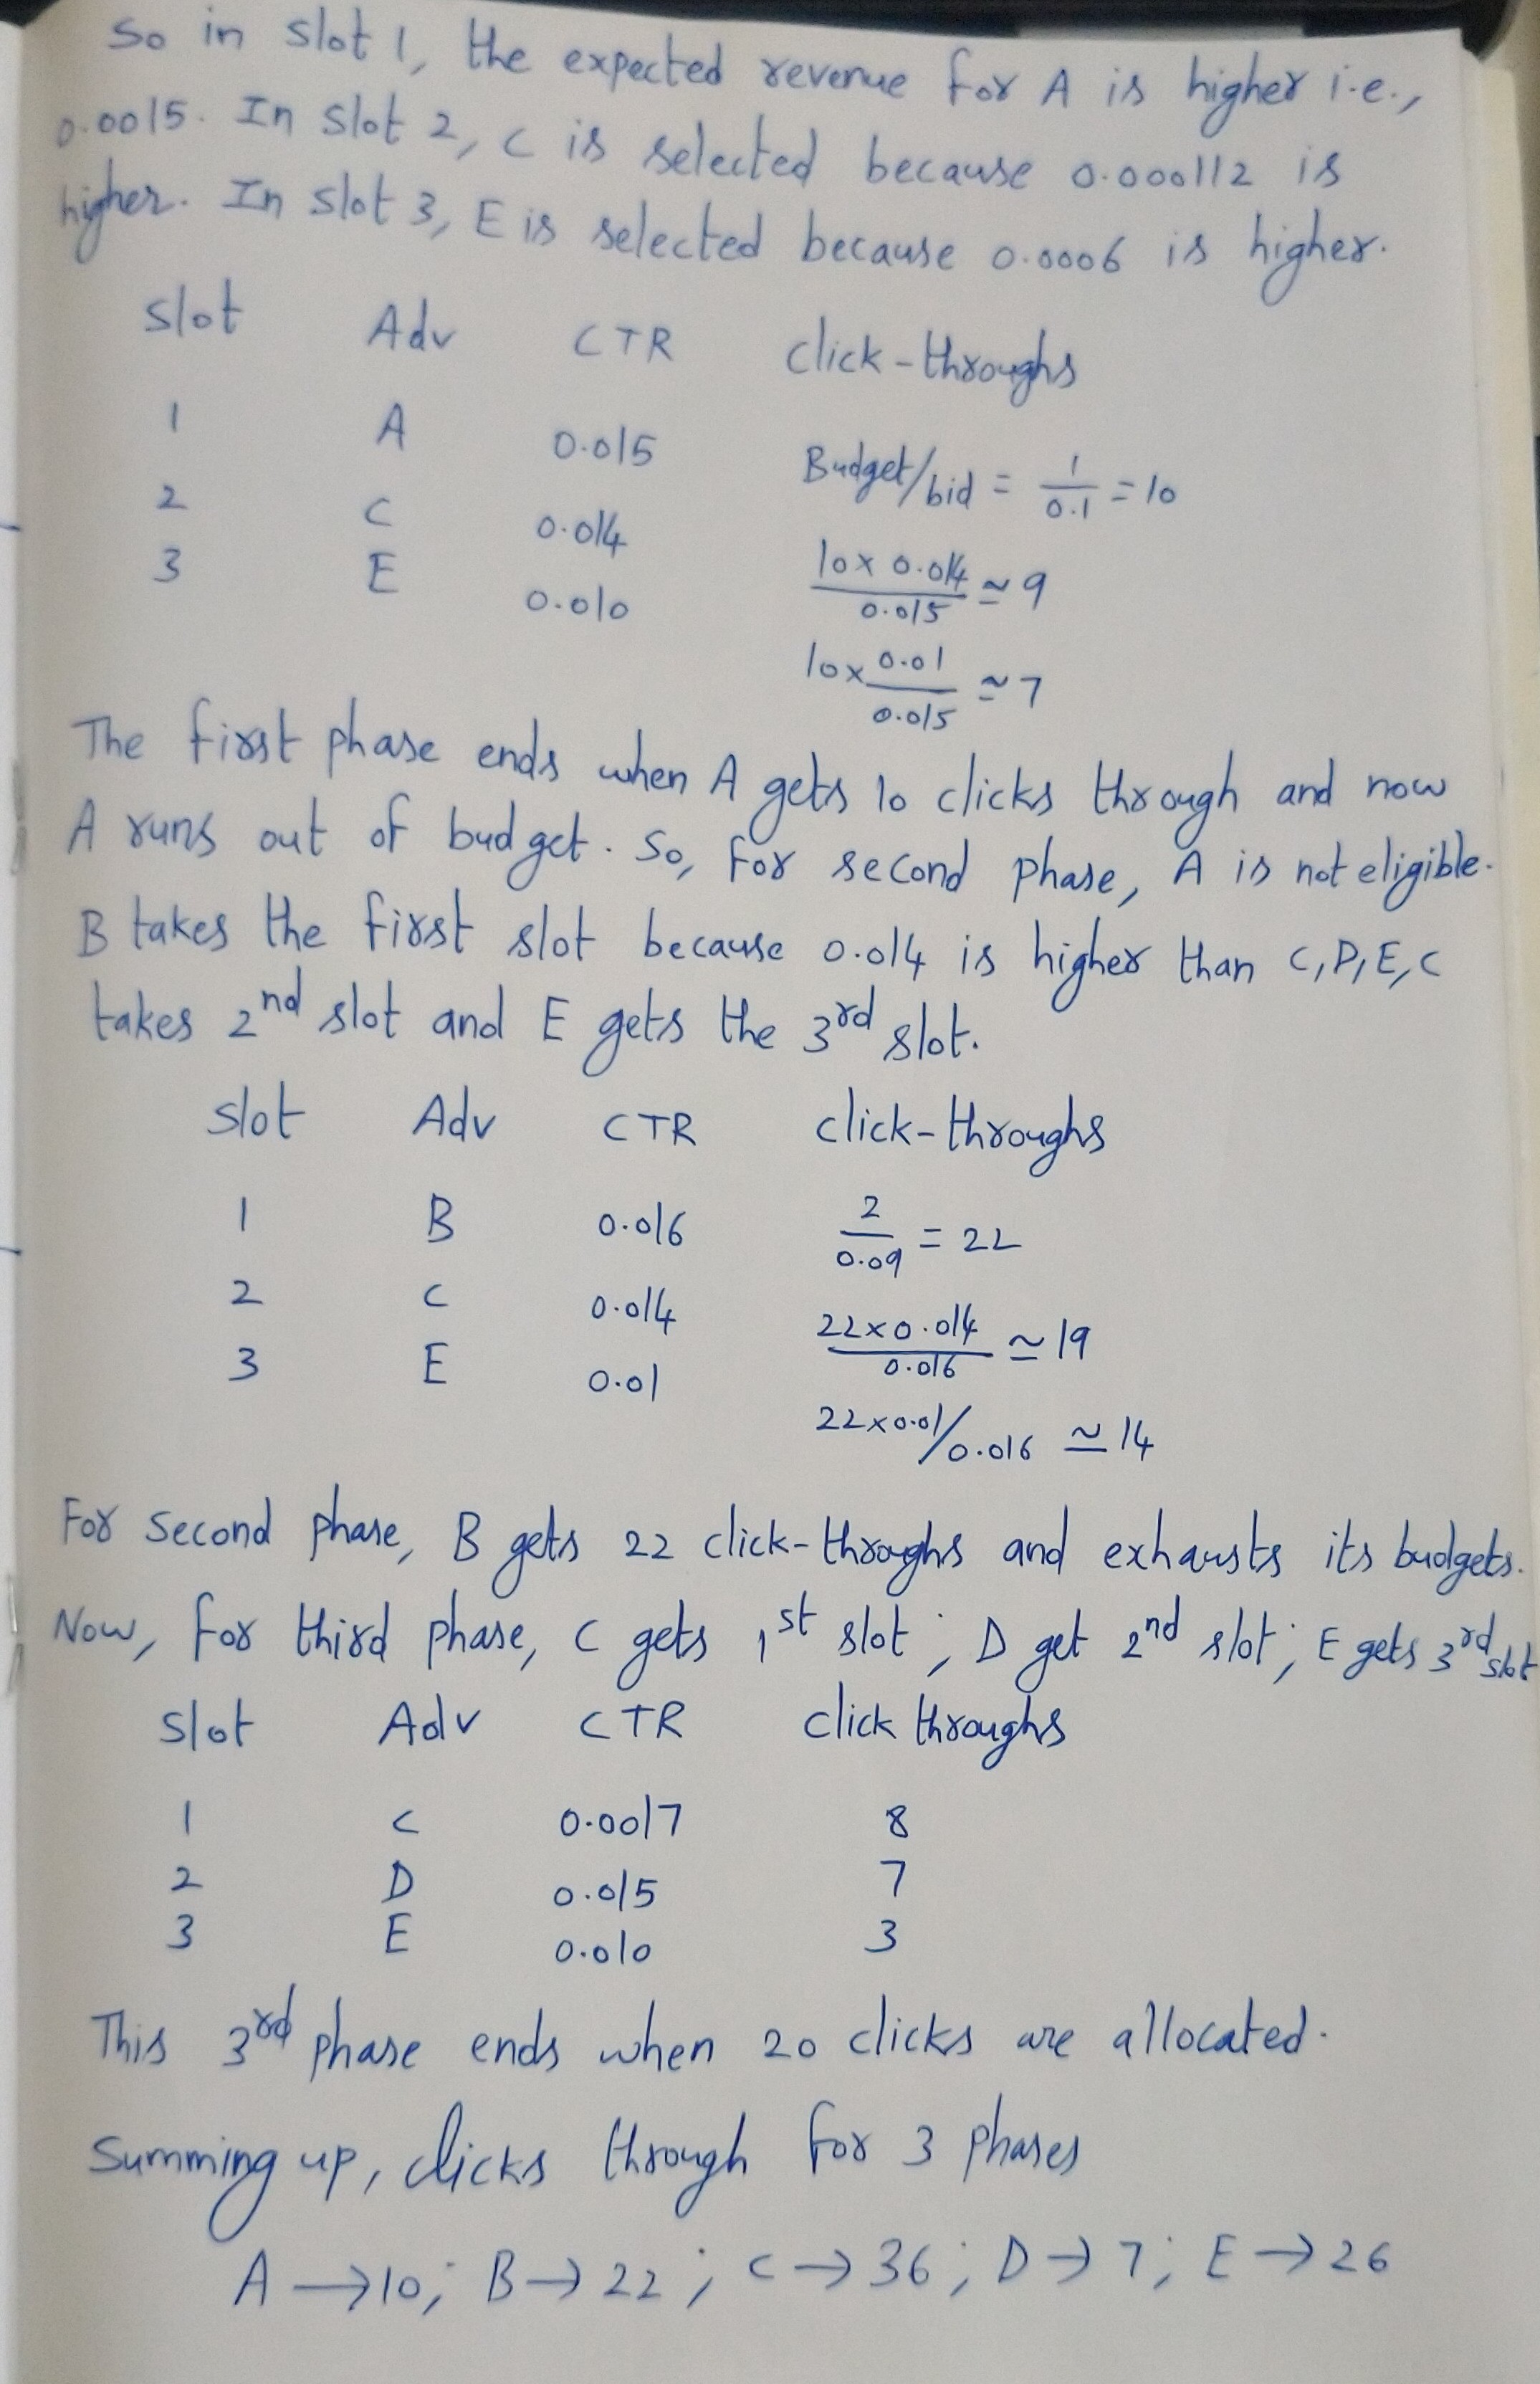 So in slot 1, the expected revenue for A is higher i.e.,
0.0015. In slot 2, C is selected because 0.000112 is
higher. In slot 3, E is selected because 0.0006 is higher.
slot Adv CTR click-throughs
1 A 0.015 Budget/bid = 1/0.1 = 10
2 C 0.014 10x 0.014/0.015 ≃ 9
3 E 0.010 10x 0.01/0.015 ≃ 7
The first phase ends when A gets 10 clicks through and now
A runs out of budget. So, for second phase, A is not eligible.
B takes the first slot because 0.014 is higher than C, D, E, C
takes 2nd slot and E gets the 3rd slot.
slot Adv CTR click-throughs
1 B 0.016 2/0.09 = 22
2 C 0.014 22x0.014/0.016 ≃ 19
3 E 0.01 22x0.01/0.016 ≃ 14
For second phase, B gets 22 click-throughs and exhausts its budgets.
Now, for third phase, C gets 1st slot; D get 2nd slot; E gets 3rd slot
slot Adv CTR click throughs
1 C 0.0017 8
2 D 0.015 7
3 E 0.010 3
This 3rd phase ends when 20 clicks are allocated.
Summing up, clicks through for 3 phases
A → 10; B → 22; C → 36; D → 7; E → 26